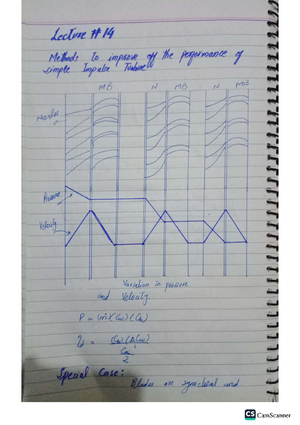 Lecture # 14
Methods to improve off the performance of
simple Impulse Turbine
MB N MB N MB
Nozzle
Pressure
Velocity
Variation in pressure
and Velocity.
Special Case:
Blades are symetrical and
CS CamScanner